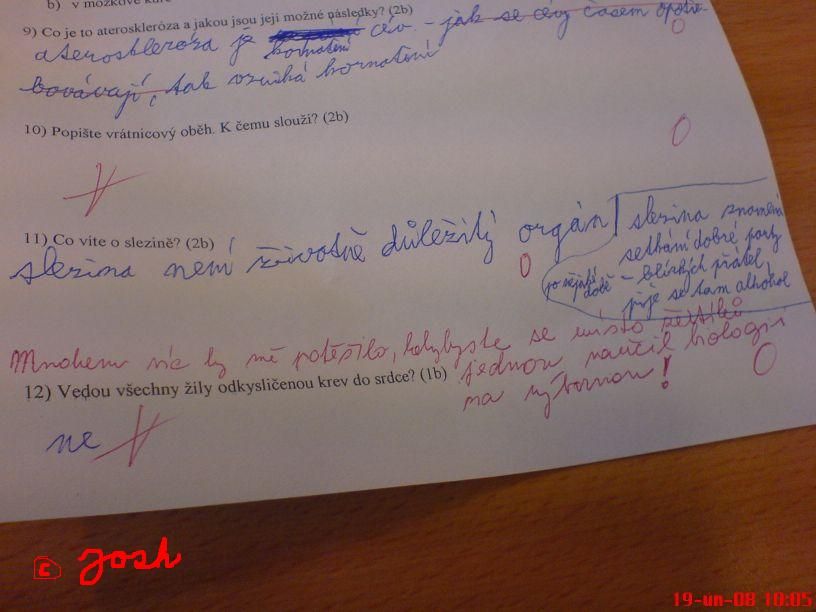 b) v mozkové kůře
9) Co je to ateroskleróza a jakou jsou její možné následky? (2b)
ateroskleróza je kornatění cév – jak se cévy časem opotře-
bovávají, tak vzniká kornatění
0
10) Popište vrátnicový oběh. K čemu slouží? (2b)
0
11) Co víte o slezině? (2b)
slezina není životně důležitý orgán
0
slezina znamená
setkání dobré party
– blízkých přátel,
po nějaké době
pije se tam alkohol
Mnohem víc by mě potěšilo, kdybyste se místo
jednou naučil biologii
na výbornou!
0
12) Vedou všechny žíly odkysličenou krev do srdce? (1b)
ne
c Josh
19-ún-08 10:05